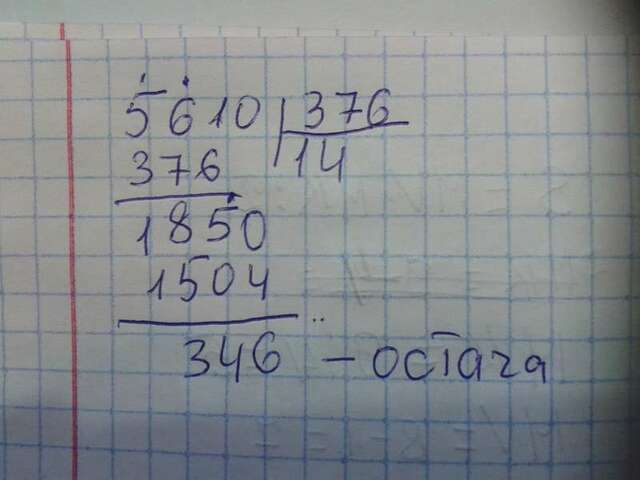 5610 376
376 14
1850
1504
346 – остача